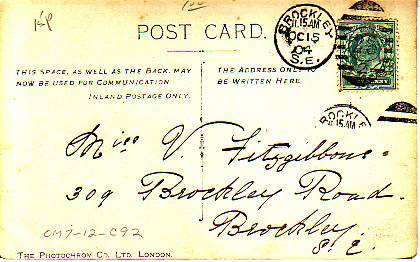 15p
POST CARD.
BROCKLEY
11.15AM
OC 15
04
S.E.
THIS SPACE, AS WELL AS THE BACK, MAY
NOW BE USED FOR COMMUNICATION
INLAND POSTAGE ONLY.
THE ADDRESS ONLY TO
BE WRITTEN HERE.
BROCKLE
15AM
Miss V. Fitzgibbons.
309 Brockley Road.
Brockley.
S. E.
OM7-12-C92
THE PHOTOCHROM CO. LTD. LONDON.